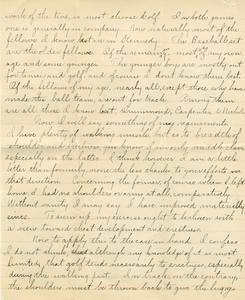 work of the two, is most choose golf. In both games
one is privately in company. Now naturally most of the
fellows I know best are in Kennedy. The Baseball set
are the older fellows. Of the remainder, most of my own
age and some younger. The younger boys are mostly out
for tennis and golf, and of course I don't know them best.
Of the fellows of my age, nearly all, except those who have
made the ball team, are out for track. Among them
are all those I know best, Hammond, Carpenter &
Now I will say something of my
I have plenty of walking muscle but as to breadth of
shoulders and I am only middle class
especially on the latter. I think however I am a little
better than formerly, none the less thanks to your efforts in
that direction. Concerning the former, of course when I left
home I had no shoulders or arms at all, comparatively.
Without vanity I may say I have improved materially
since. To sum up, my exercise ought to be chosen with
a view toward chest development and erectness.
Now to apply this to the case in hand. I confess
I do not think, although any knowledge of it is most
limited, that golf tends necessarily to erectness, especially
during the walking part. In track, on the contrary,
the shoulders must be thrown back to give the lungs